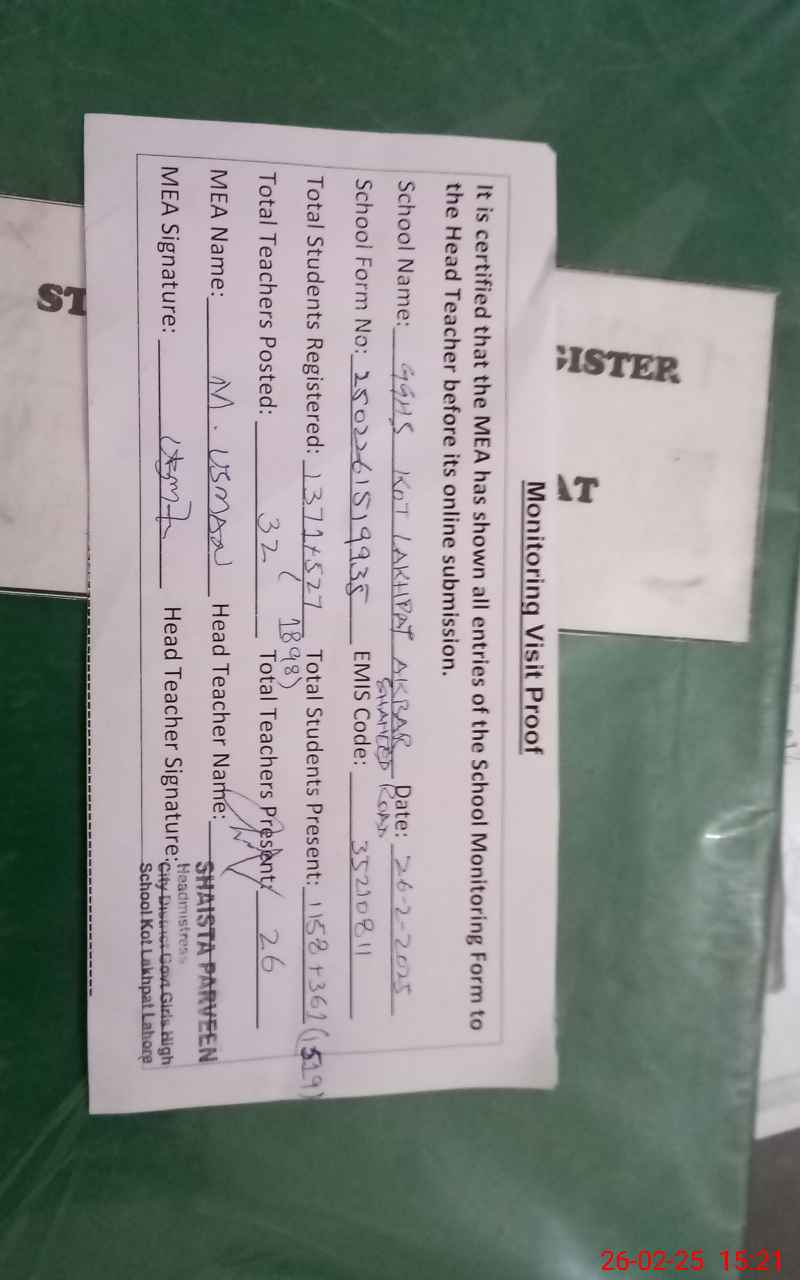 Monitoring Visit Proof
It is certified that the MEA has shown all entries of the School Monitoring Form to
the Head Teacher before its online submission.
School Name: GGHS KOT LAKHPAT AKBAR Date: 26-2-2025
SHAHEED ROAD
School Form No: 2502261519935 EMIS Code: 35210811
Total Students Registered: 1371+527 Total Students Present: 1158+361 (1519)
(1898)
Total Teachers Posted: 32 Total Teachers Present: 26
MEA Name: M. USMAN Head Teacher Name:
MEA Signature: Head Teacher Signature:
SHAISTA PARVEEN
Headmistress
City District Govt Girls High
School Kot Lakhpat Lahore
GISTER
AT
ST
26-02-25 15:21